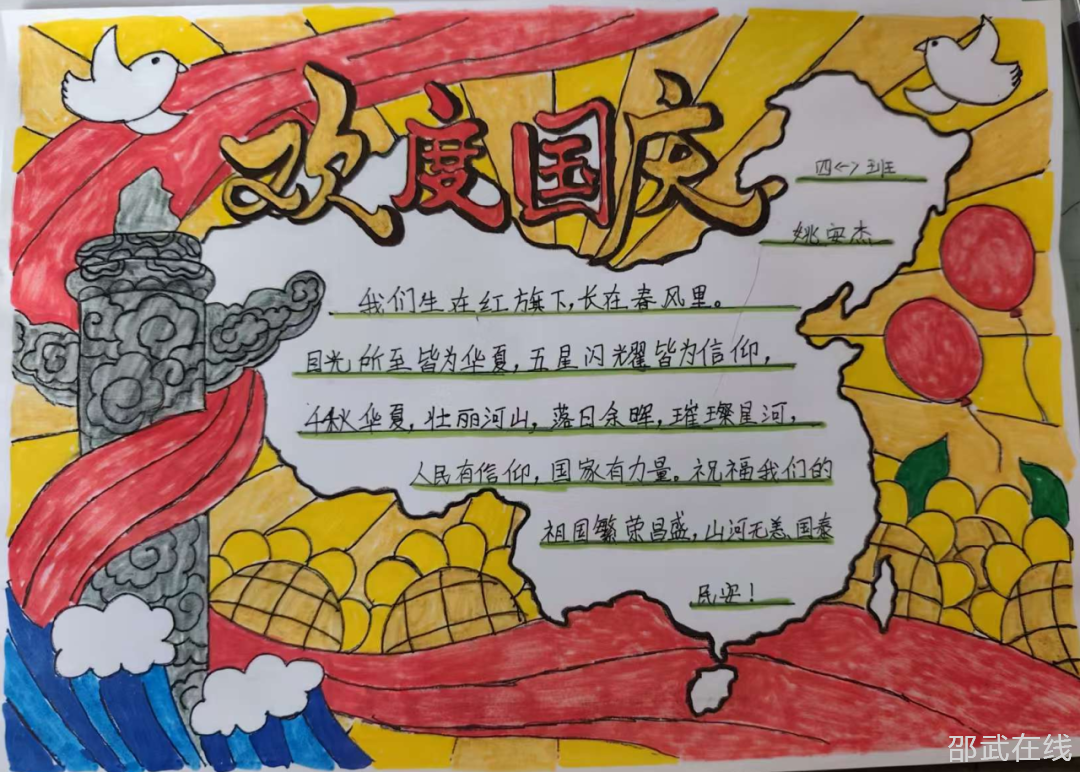 欢度国庆
四(一)班
姚安杰
我们生在红旗下,长在春风里。
目光所至皆为华夏,五星闪耀皆为信仰,
千秋华夏,壮丽河山,落日余晖,璀璨星河,
人民有信仰,国家有力量。祝福我们的
祖国繁荣昌盛,山河无恙、国泰
民安!
邵武在线